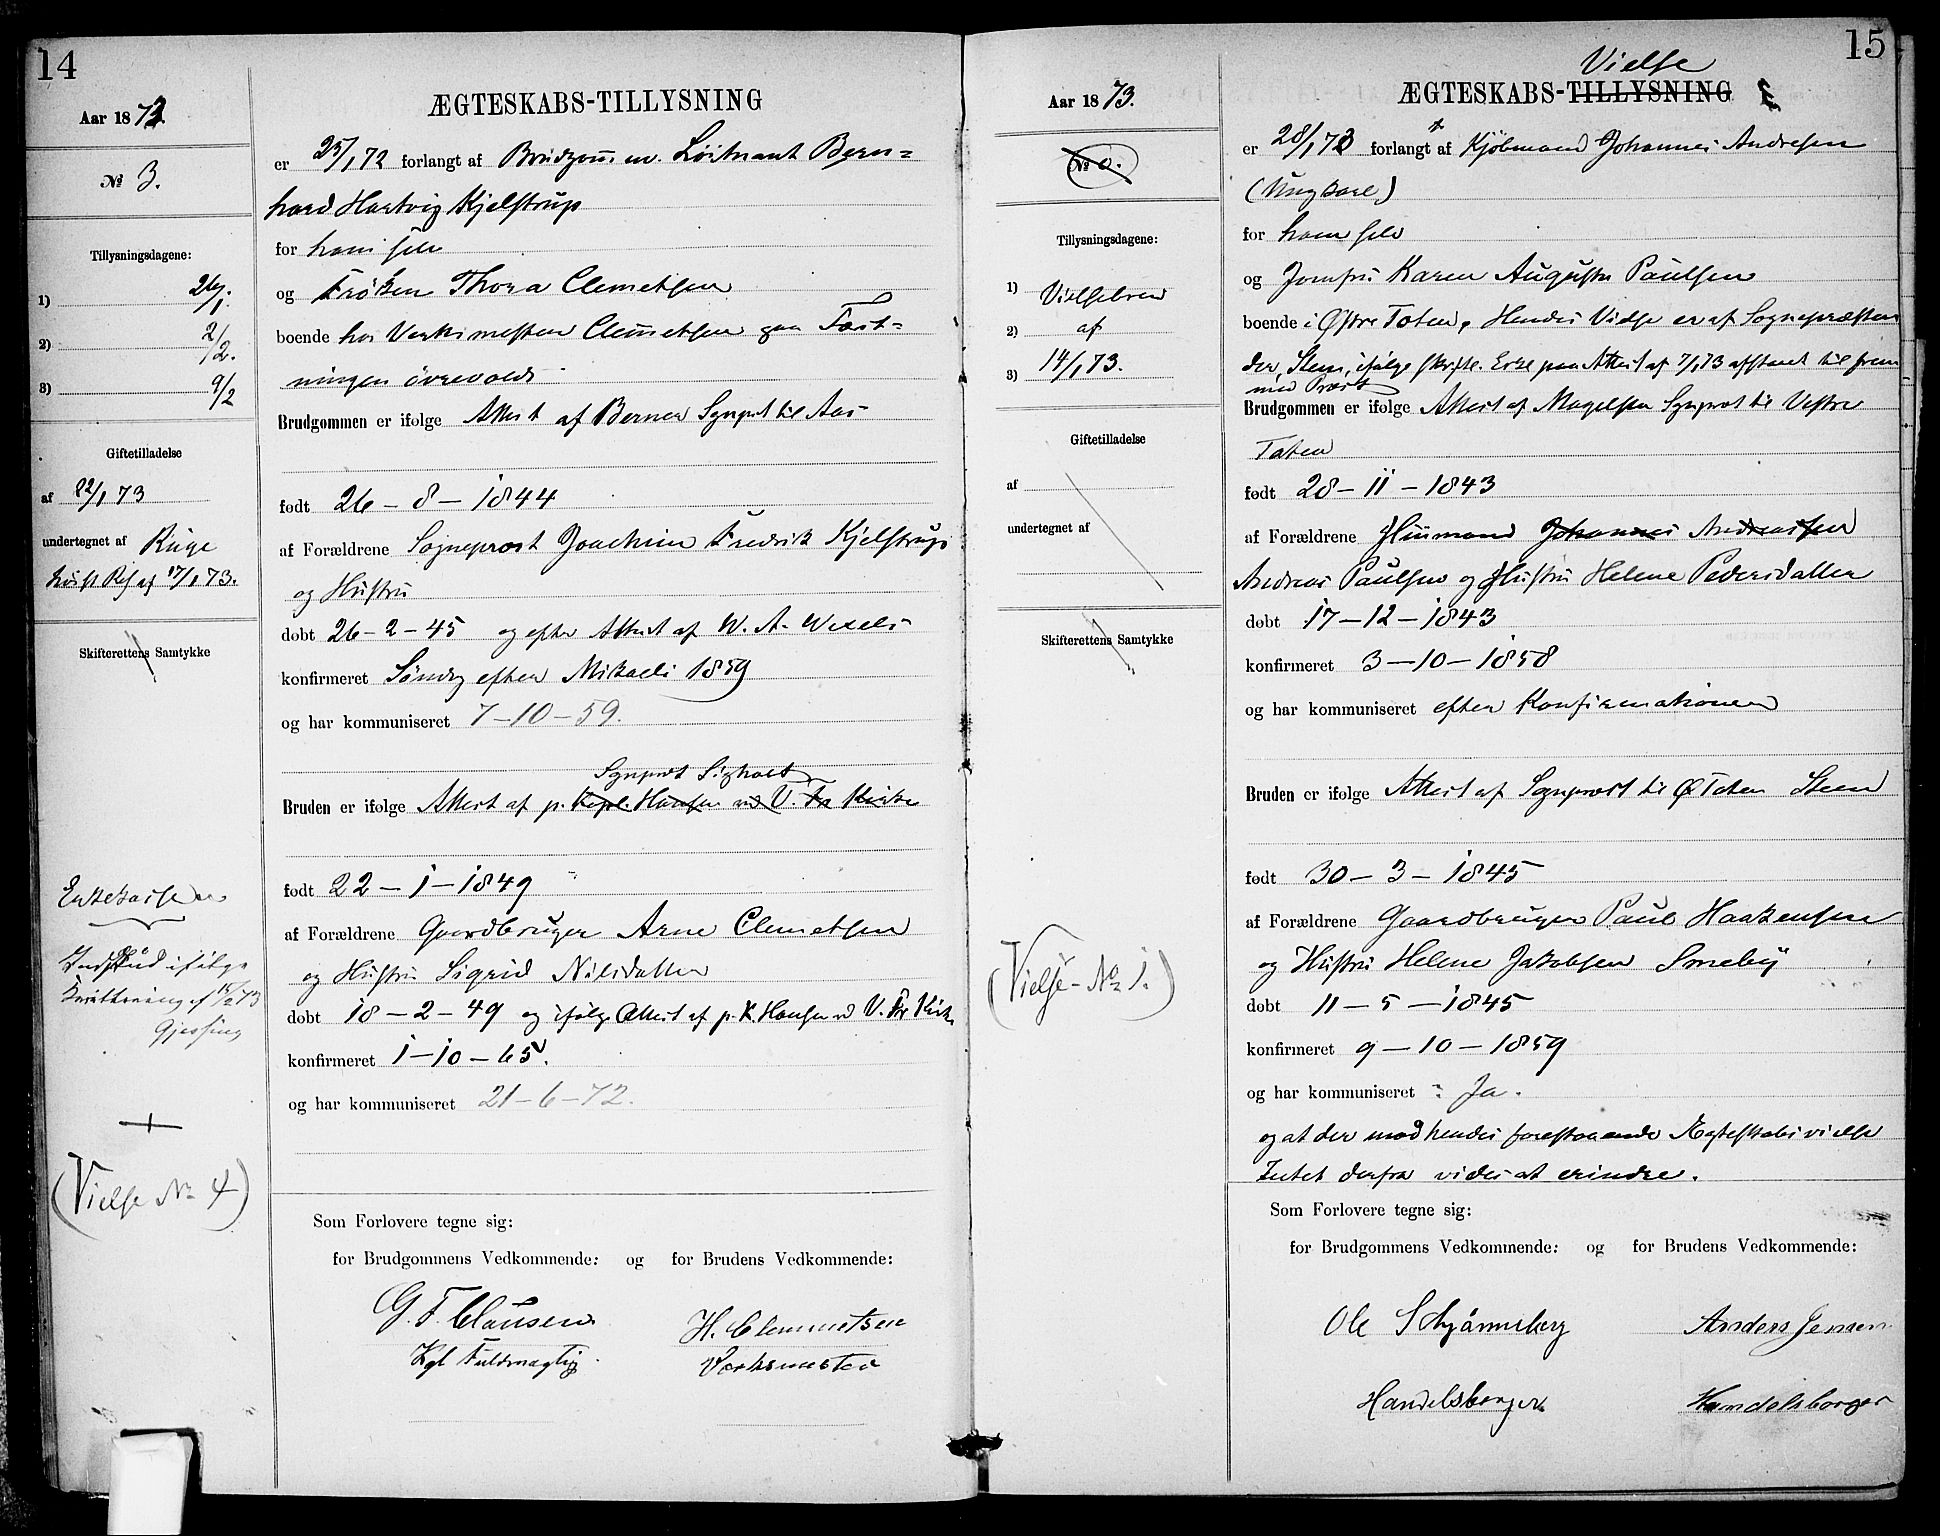 14
Aar 1873
№ 3.
Tillysningsdagene:
1) 26/1.
2) 2/2.
3) 9/2
Giftetilladelse
af 22/1 73
undertegnet af Ruge
17/1 73.
Skifterettens Samtykke
Enkekassen
Indskud ifølge
Kvittering af /2 73
Gjessing
(Vielse № 4)
ÆGTESKABS-TILLYSNING
er 25/1 72 forlangt af Brudgommen Løitnant Bern=
hard Hartvig Kjelstrup
for ham selv
og Frøken Thora Clemetsen
boende hos Verksmester Clemetsen paa Fæst=
ningen
Brudgommen er ifølge Attest af Berner Sgnprst til Aas
født 26-8-1844
af Forældrene Sogneprest Joachim Fredrik Kjelstrup
og Hustru
døbt 26-2-45 og efter Attest af W. A. Wexels
konfirmeret Søndg efter Mikaeli 1859
og har kommuniseret 7-10-59.
Sgnprest
Bruden er ifølge Attest af p. Kapl. Hansen ved V. Kirke
født 22-1-1849
af Forældrene Gaardbruger Arne Clemetsen
og Hustru Sigrid Nilsdatter
døbt 18-2-49 og ifølge Attest af p. K. Hansen ved V. Kirk
konfirmeret 1-10-65.
og har kommuniseret 21-6-72.
Som Forlovere tegne sig:
for Brudgommens Vedkommende: og for Brudens Vedkommende:
G. F. Clausen H. Clemmetsen
Kgl Fuldmægtig. Verksmester
15
Aar 1873.
№ 0.
Tillysningsdagene:
1) Vielsebrev
2) af
3) 14/1 73.
Giftetilladelse
af
undertegnet af
Skifterettens Samtykke
(Vielse № 1.)
Vielse
ÆGTESKABS-TILLYSNING
er 28/1 73 forlangt af Kjøbmand Johannes Andresen
(Ungkarl)
for ham selv
og Jomfru Karen Augusta Paulsen
boende i Østre Toten. Hendes Vielse er af Sognepræsten
der, Steen, ifølge Erkl. paa Attest af 7/1 73 afstaaet til
med Præst
Brudgommen er ifølge Attest af Magelssen Sgnprst til Vestre
Toten
født 28-11-1843
af Forældrene Husmand Johannes Andreassen
Andreas Paulsen og Hustru Helene Pedersdatter
døbt 17-12-1843
konfirmeret 3-10-1858
og har kommuniseret efter Konfirmationen
Bruden er ifølge Attest af Sognprest til Ø Toten Steen
født 30-3-1845
af Forældrene Gaardbruger Paul Haakensen
og Hustru Helene Jakobsen Smeby
døbt 11-5-1845
konfirmeret 9-10-1859
og har kommuniseret : Ja.
og at der mod hendes forestaaende Ægteskabsvielse
Intet derfra vides at erindre.
Som Forlovere tegne sig:
for Brudgommens Vedkommende: og for Brudens Vedkommende:
Ole Anders Jensen
Handelsborger. Handelsborger